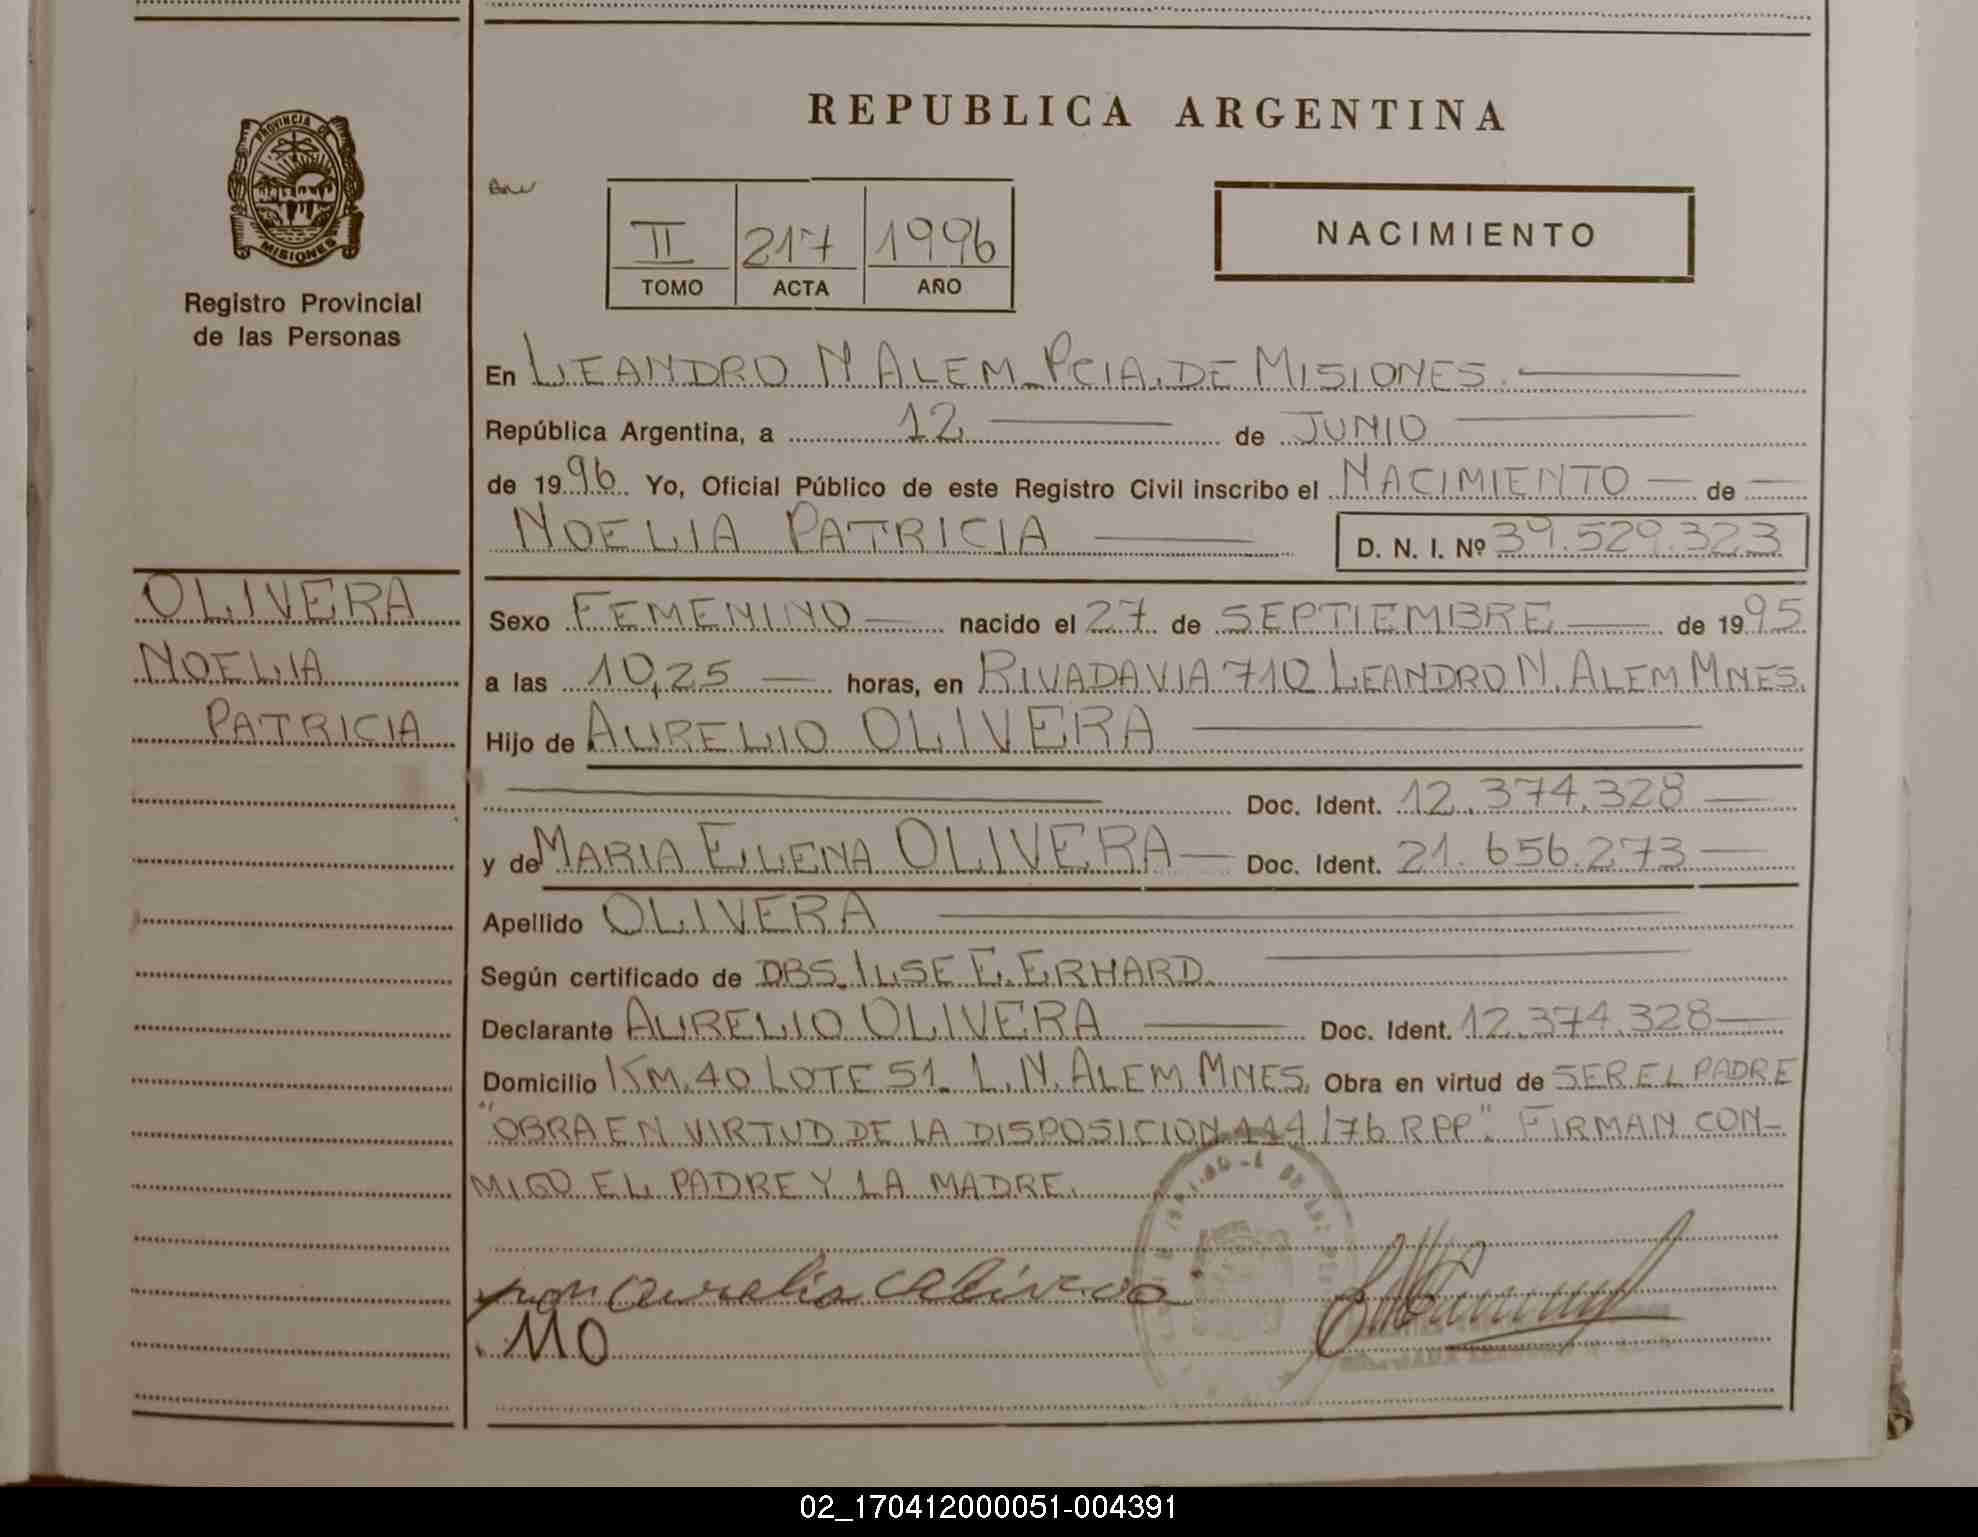 REPUBLICA ARGENTINA
PROVINCIA DE
MISIONES
Registro Provincial
de las Personas
II 217 1996
TOMO ACTA AÑO
NACIMIENTO
En LEANDRO N ALEM PCIA. DE MISIONES.
República Argentina, a 12 de JUNIO
de 1996 Yo, Oficial Público de este Registro Civil inscribo el NACIMIENTO de
NOELIA PATRICIA D. N. I. Nº 39.529.323
OLIVERA
NOELIA
PATRICIA
Sexo FEMENINO nacido el 27 de SEPTIEMBRE de 1995
a las 10,25 horas, en RIVADAVIA 710 LEANDRO N. ALEM MNES.
Hijo de AURELIO OLIVERA
Doc. Ident. 12.374.328
y de MARIA ELENA OLIVERA Doc. Ident. 21.656.273
Apellido OLIVERA
Según certificado de OBS. ILSE E. ERHARD.
Declarante AURELIO OLIVERA Doc. Ident. 12.374.328
Domicilio KM. 40 LOTE 51 L. N. ALEM MNES. Obra en virtud de SER EL PADRE
"OBRA EN VIRTUD DE LA DISPOSICION 114/76 RPP". FIRMAN CON-
MIGO EL PADRE Y LA MADRE.
MO
02_170412000051-004391